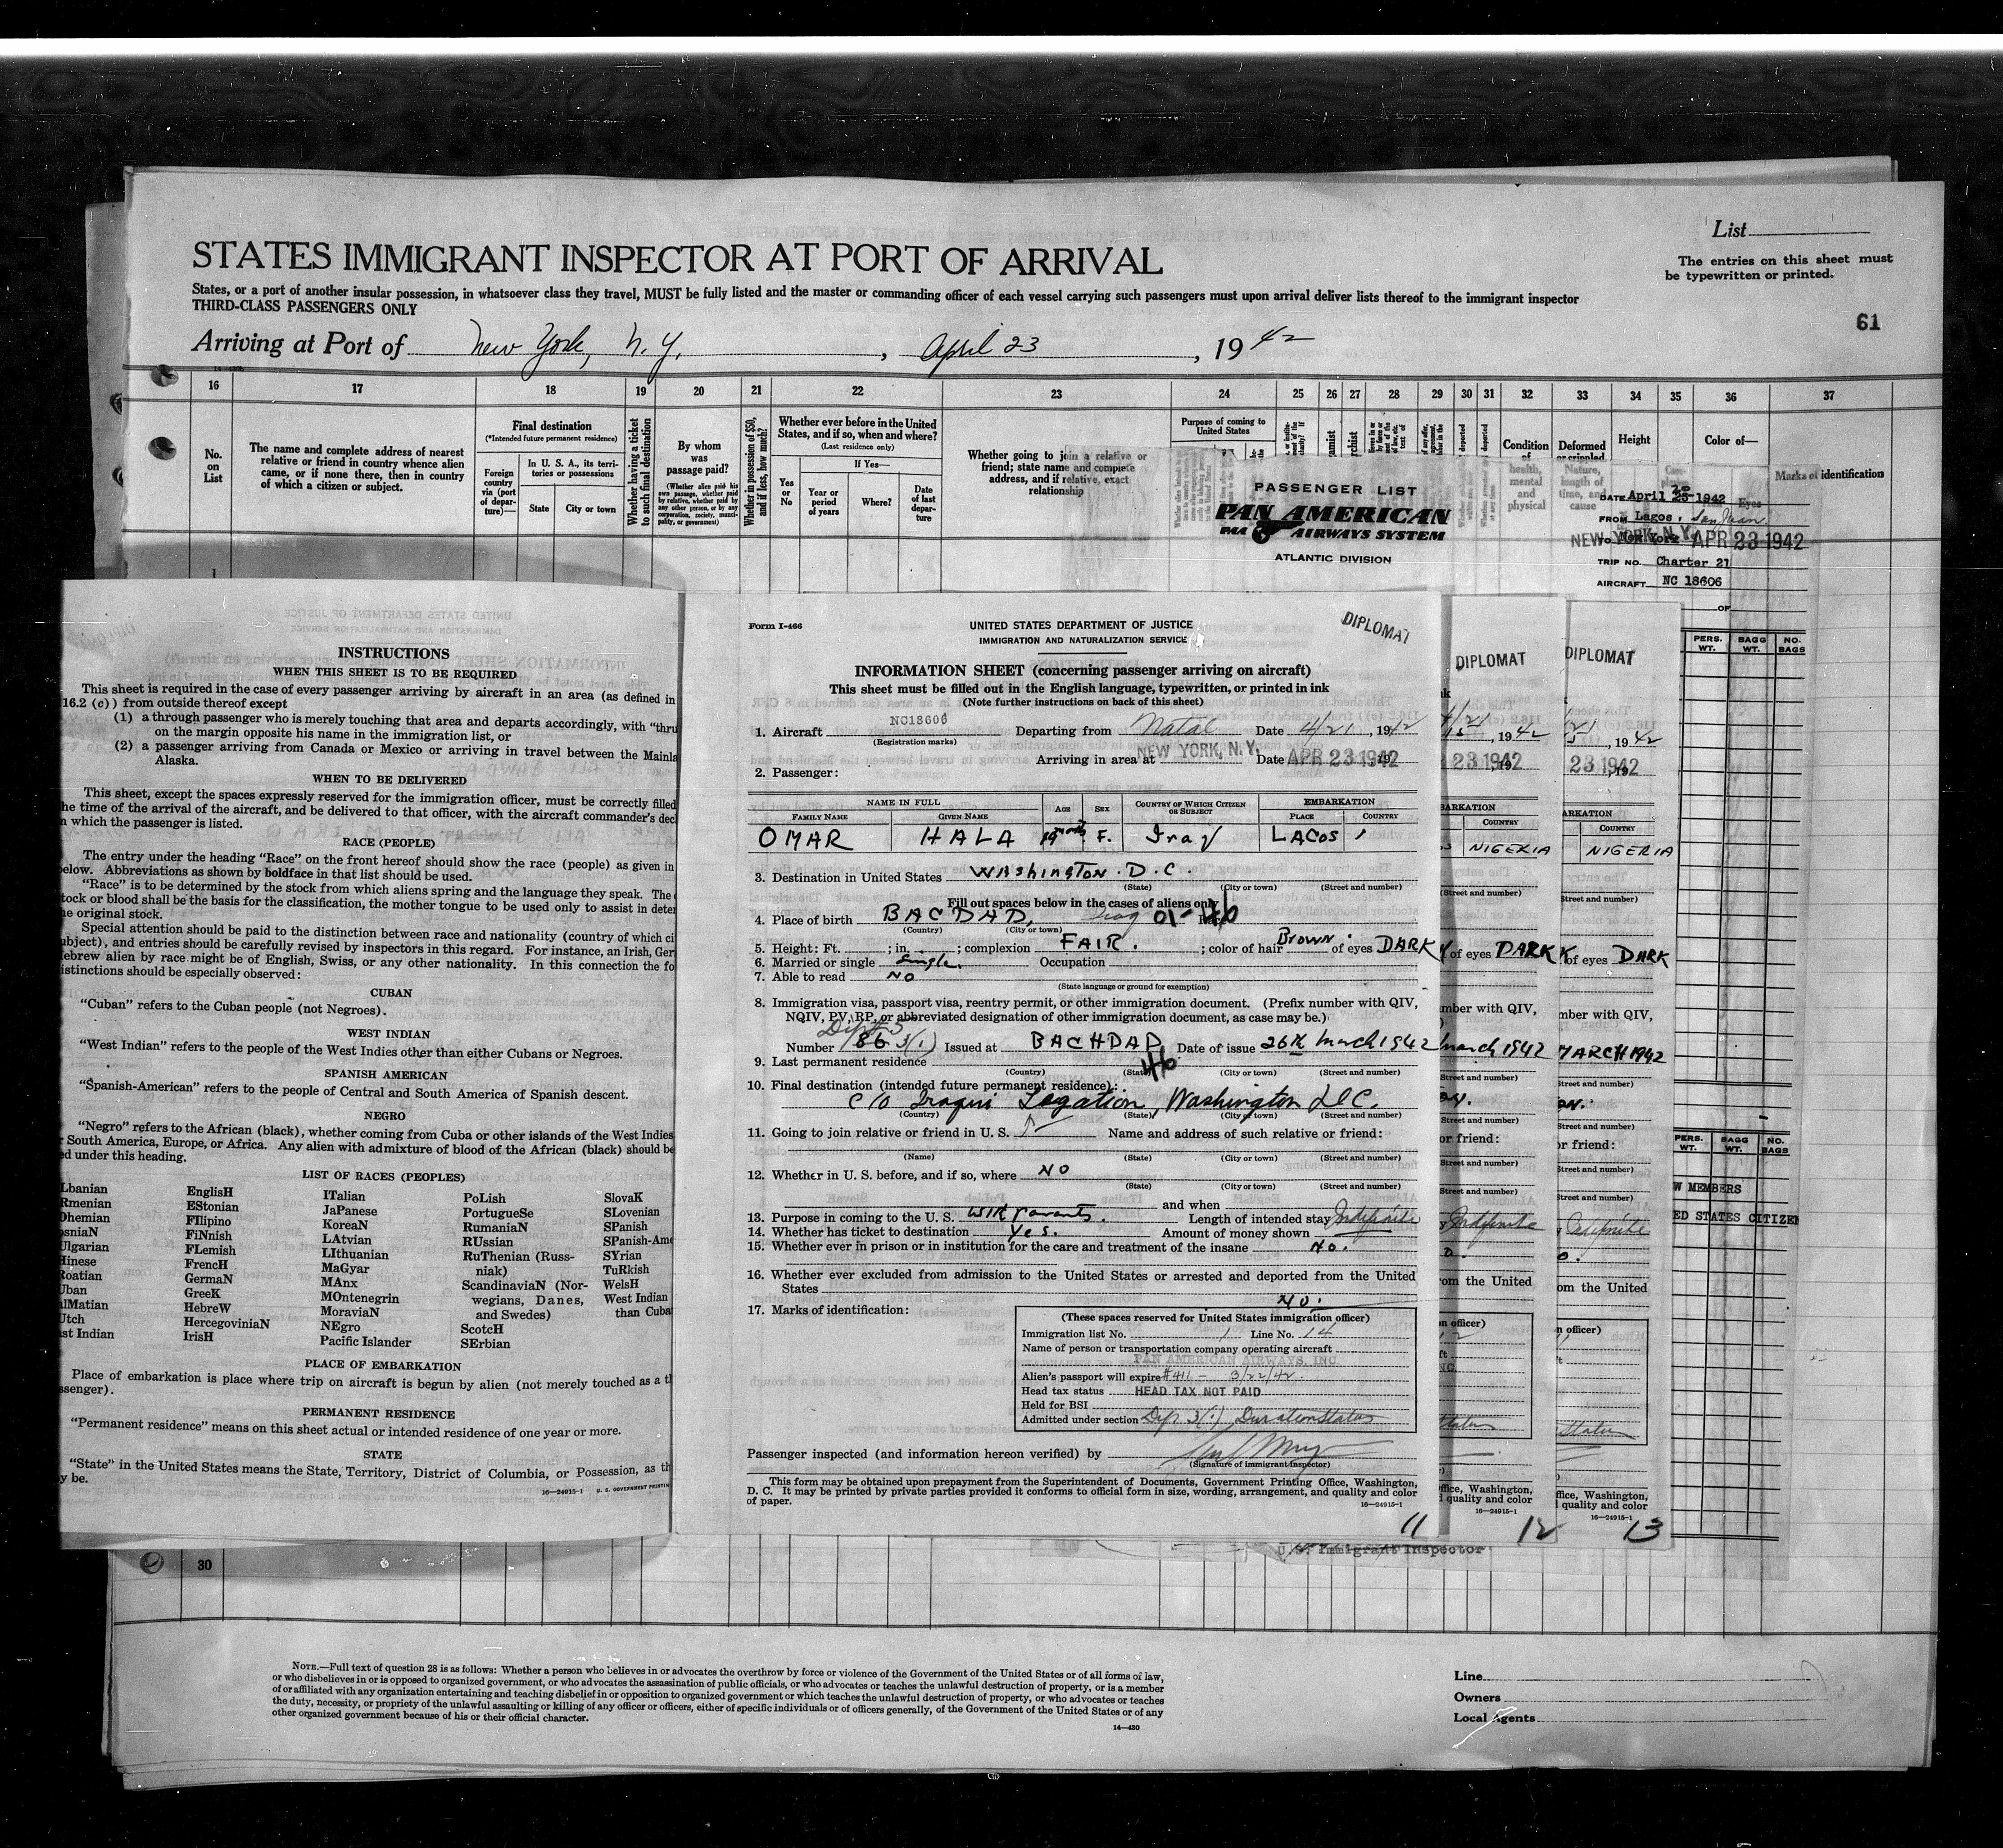 List
STATES IMMIGRANT INSPECTOR AT PORT OF ARRIVAL
The entries on this sheet must
be typewritten or printed.
States, or a port of another insular possession, in whatsoever class they travel, MUST be fully listed and the master or commanding officer of each vessel carrying such passengers must upon arrival deliver lists thereof to the immigrant inspector
THIRD-CLASS PASSENGERS ONLY
61
Arriving at Port of New York, N.Y., April 23, 1942
16 17 18 19 20 21 22 23 24 25 26 27 28 29 30 31 32 33 34 35 36 37
No.
on
List
The name and complete address of nearest
relative or friend in country whence alien
came, or if none there, then in country
of which a citizen or subject.
Final destination
(*Intended future permanent residence)
Foreign
country
via (port
of depar-
ture)—
In U. S. A., its terri-
tories or possessions
State
City or town
Whether having a ticket
to such final destination
By whom
was
passage paid?
(Whether alien paid his
own passage, whether paid
by relative, whether paid by
any other person, or by any
corporation, society, munici-
pality, or government)
Whether in possession of $50,
and if less, how much?
Whether ever before in the United
States, and if so, when and where?
(Last residence only)
If Yes—
Yes
or
No
Year or
period
of years
Where?
Date
of last
depar-
ture
Whether going to join a relative or
friend; state name and complete
address, and if relative, exact
relationship
Purpose of coming to
United States
Condition
of
health,
mental
and
physical
Deformed
or crippled.
Nature,
length of
time, and
cause
Height
Color of—
Eyes
Marks of identification
PASSENGER LIST
PAN AMERICAN
PAA AIRWAYS SYSTEM
ATLANTIC DIVISION
DATE April 1942
FROM Lagos, San Juan
TO New York
NEW YORK, N.Y. APR 23 1942
TRIP NO. Charter 21
AIRCRAFT NC 18606
OF
PERS. WT. BAGG WT. NO. BAGS
INSTRUCTIONS
WHEN THIS SHEET IS TO BE REQUIRED
This sheet is required in the case of every passenger arriving by aircraft in an area (as defined in
16.2 (c)) from outside thereof except
(1) a through passenger who is merely touching that area and departs accordingly, with "thru
on the margin opposite his name in the immigration list, or
(2) a passenger arriving from Canada or Mexico or arriving in travel between the Mainla
Alaska.
WHEN TO BE DELIVERED
This sheet, except the spaces expressly reserved for the immigration officer, must be correctly filled
he time of the arrival of the aircraft, and be delivered to that officer, with the aircraft commander's decl
n which the passenger is listed.
RACE (PEOPLE)
The entry under the heading "Race" on the front hereof should show the race (people) as given in
elow. Abbreviations as shown by boldface in that list should be used.
"Race" is to be determined by the stock from which aliens spring and the language they speak. The
tock or blood shall be the basis for the classification, the mother tongue to be used only to assist in deter
he original stock.
Special attention should be paid to the distinction between race and nationality (country of which ci
ubject), and entries should be carefully revised by inspectors in this regard. For instance, an Irish, Ger
ebrew alien by race might be of English, Swiss, or any other nationality. In this connection the fo
istinctions should be especially observed:
CUBAN
"Cuban" refers to the Cuban people (not Negroes).
WEST INDIAN
"West Indian" refers to the people of the West Indies other than either Cubans or Negroes.
SPANISH AMERICAN
"Spanish-American" refers to the people of Central and South America of Spanish descent.
NEGRO
"Negro" refers to the African (black), whether coming from Cuba or other islands of the West Indies
r South America, Europe, or Africa. Any alien with admixture of blood of the African (black) should be
ed under this heading.
LIST OF RACES (PEOPLES)
lbanian EnglisH ITalian PoLish SlovaK
Rmenian EStonian JaPanese PortugueSe SLovenian
Ohemian FIlipino KoreaN RumaniaN SPanish
osniaN FiNnish LAtvian RUssian SPanish-Ame
Ulgarian FLemish LIthuanian RuThenian (Russ- SYrian
hinese FrencH MaGyar niak) TuRkish
Roatian GermaN MAnx ScandinaviaN (Nor- WelsH
Uban GreeK MOntenegrin wegians, Danes, West Indian
alMatian HebreW MoraviaN and Swedes) than Cuba
Utch HercegoviniaN NEgro ScotcH
st Indian IrisH Pacific Islander SErbian
PLACE OF EMBARKATION
Place of embarkation is place where trip on aircraft is begun by alien (not merely touched as a t
ssenger).
PERMANENT RESIDENCE
"Permanent residence" means on this sheet actual or intended residence of one year or more.
STATE
"State" in the United States means the State, Territory, District of Columbia, or Possession, as th
y be.
16—24915-1 U. S. GOVERNMENT PRINTIN
Form I-466
UNITED STATES DEPARTMENT OF JUSTICE
IMMIGRATION AND NATURALIZATION SERVICE
DIPLOMAT
INFORMATION SHEET (concerning passenger arriving on aircraft)
This sheet must be filled out in the English language, typewritten, or printed in ink
(Note further instructions on back of this sheet)
1. Aircraft NC18606 Departing from Natal Date 4/21, 1942
(Registration marks)
Arriving in area at NEW YORK, N.Y. Date APR 23 1942
2. Passenger:
NAME IN FULL AGE SEX COUNTRY OF WHICH CITIZEN OR SUBJECT EMBARKATION
FAMILY NAME GIVEN NAME PLACE COUNTRY
OMAR HALA 19 months F. Iraq LAGOS
3. Destination in United States Washington. D.C.
(State) (City or town) (Street and number)
Fill out spaces below in the cases of aliens only
4. Place of birth BAGDAD, Iraq 01-46
(Country) (City or town)
5. Height: Ft. ; in. ; complexion FAIR. ; color of hair Brown. of eyes DARK
6. Married or single Single. Occupation
7. Able to read NO
(State language or ground for exemption)
8. Immigration visa, passport visa, reentry permit, or other immigration document. (Prefix number with QIV,
NQIV, PV, RP, or abbreviated designation of other immigration document, as case may be.)
Number 86 3(1) Issued at BAGHDAD Date of issue 26th March 1942
9. Last permanent residence 46
(Country) (State) (City or town) (Street and number)
10. Final destination (intended future permanent residence):
c/o Iraqui Legation, Washington D.C.
(Country) (State) (City or town) (Street and number)
11. Going to join relative or friend in U. S. Name and address of such relative or friend:
(Name) (State) (City or town) (Street and number)
12. Whether in U. S. before, and if so, where NO
(State) (City or town) (Street and number)
and when
13. Purpose in coming to the U. S. with parents. Length of intended stay Indefinite
14. Whether has ticket to destination Yes. Amount of money shown
15. Whether ever in prison or in institution for the care and treatment of the insane No.
16. Whether ever excluded from admission to the United States or arrested and deported from the United
States NO.
17. Marks of identification:
(These spaces reserved for United States immigration officer)
Immigration list No. 1 Line No. 14
Name of person or transportation company operating aircraft
PAN AMERICAN AIRWAYS, INC.
Alien's passport will expire #411 - 3/22/42.
Head tax status HEAD TAX NOT PAID
Held for BSI
Admitted under section Dip. 3(1) Duration Status
Passenger inspected (and information hereon verified) by
(Signature of immigrant inspector)
This form may be obtained upon prepayment from the Superintendent of Documents, Government Printing Office, Washington,
D. C. It may be printed by private parties provided it conforms to official form in size, wording, arrangement, and quality and color
of paper.
16—24915-1
11
DIPLOMAT
1942
23 1942
COUNTRY
NIGERIA
(Street and number)
of eyes DARK
mber with QIV,
March 1942
(Street and number)
or friend:
Indefinite
om the United
n officer)
ffice, Washington,
quality and color
16—24915-1
12
DIPLOMAT
1942
23 1942
ARKATION
COUNTRY
NIGERIA
(Street and number)
of eyes DARK
mber with QIV,
MARCH 1942
(Street and number)
or friend:
Indefinite
om the United
n officer)
ffice, Washington,
quality and color
16—24915-1
13
PERS. WT. BAGG WT. NO. BAGS
W MEMBERS
ED STATES CITIZEN
U.S. Immigrant Inspector
30
NOTE.—Full text of question 28 is as follows: Whether a person who believes in or advocates the overthrow by force or violence of the Government of the United States or of all forms of law,
or who disbelieves in or is opposed to organized government, or who advocates the assassination of public officials, or who advocates or teaches the unlawful destruction of property, or is a member
of or affiliated with any organization entertaining and teaching disbelief in or opposition to organized government or which teaches the unlawful destruction of property, or who advocates or teaches
the duty, necessity, or propriety of the unlawful assaulting or killing of any officer or officers, either of specific individuals or of officers generally, of the Government of the United States or of any
other organized government because of his or their official character.
14—430
Line
Owners
Local Agents